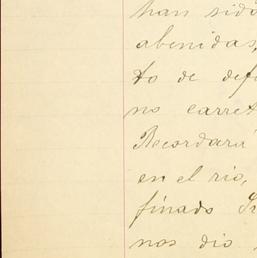 han sido
abenidas,
to de def
no carret
Recordará
en el rio,
finado
nos dio